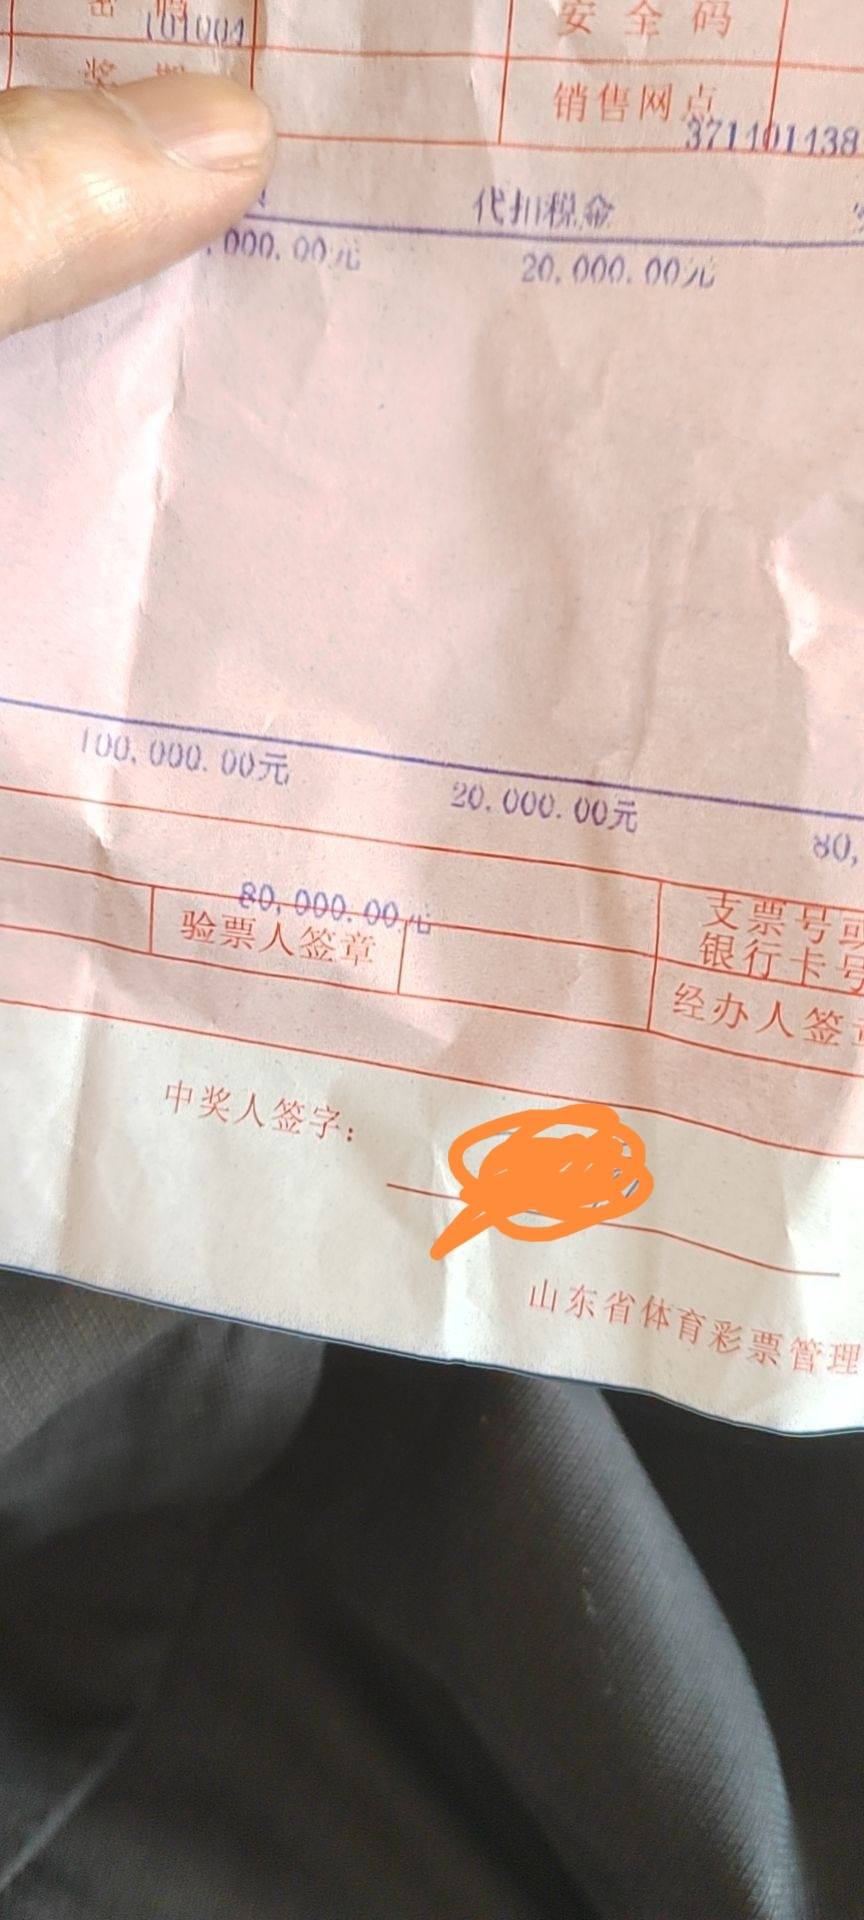 密 码
101004
安 全 码
奖
销售网点
371101138
代扣税金
,000.00元
20,000.00元
100,000.00元
20,000.00元
80,
80,000.00元
支票号或
验票人签章
银行卡号
经办人签章
中奖人签字：
山东省体育彩票管理